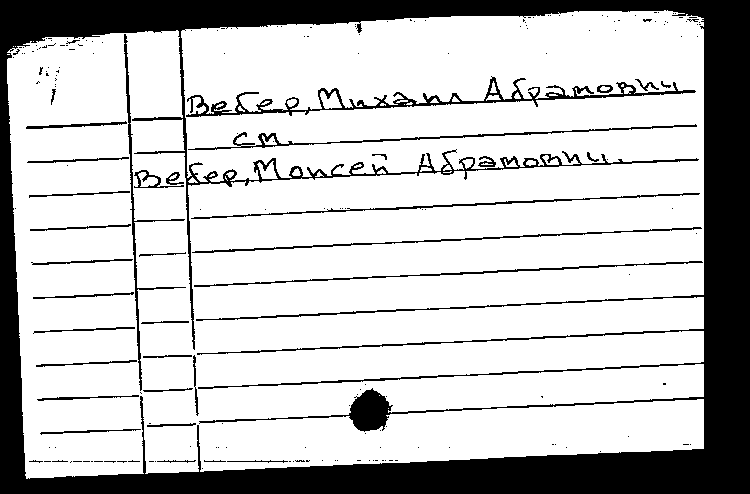 Вебер, Михаил Абрамович
см.
Вебер, Моисей Абрамович.